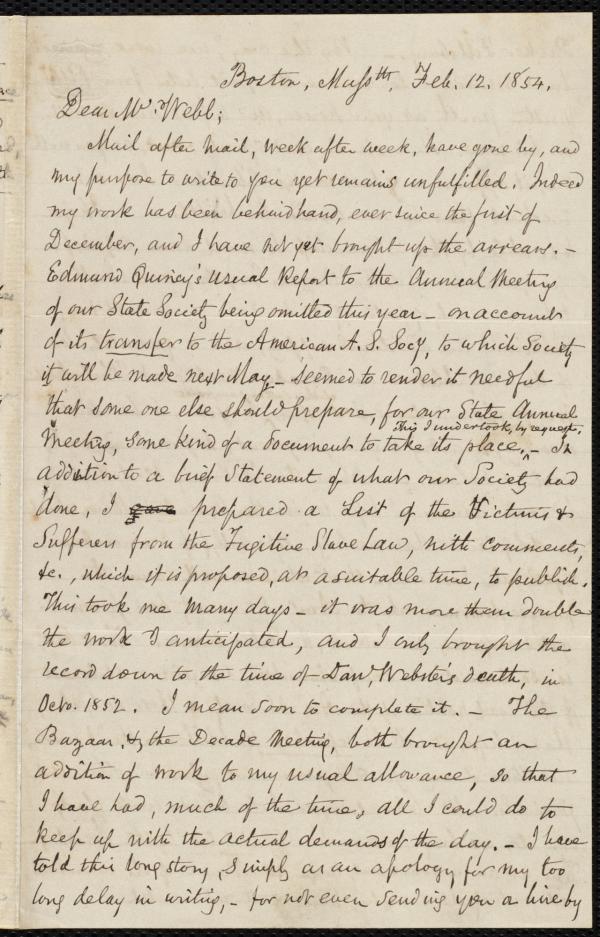 Boston, Massts, Feb. 12. 1854.
Dear Mr. Webb;
Mail after mail, week after week, have gone by, and
my purpose to write to you yet remains unfulfilled. Indeed
my work has been behindhand, ever since the first of
December, and I have not yet brought up the arrears. –
Edmund Quincy's usual Report to the Annual Meeting
of our State Society being omitted this year – on account
of its transfer to the American A. S. Socy, to which Society
it will be made next May, – seemed to render it needful
that some one else should prepare, for our State Annual
This I undertook, by request.
Meeting, some kind of a document to take its place. ^ – In
addition to a brief Statement of what our Society had
done, I gave prepared a List of the Victims &
Sufferers from the Fugitive Slave Law, with comments,
&c., which it is proposed, at a suitable time, to publish.
This took me many days – it was more than double
the work I anticipated, and I only brought the
record down to the time of Danl. Webster's death, in
Octo. 1852. I mean soon to complete it. – The
Bazaar, & the Decade Meeting, both brought an
addition of work to my usual allowance, so that
I have had, much of the time, all I could do to
keep up with the actual demands of the day. – I have
told this long story, simply as an apology for my too
long delay in writing, – for not even sending you a line by